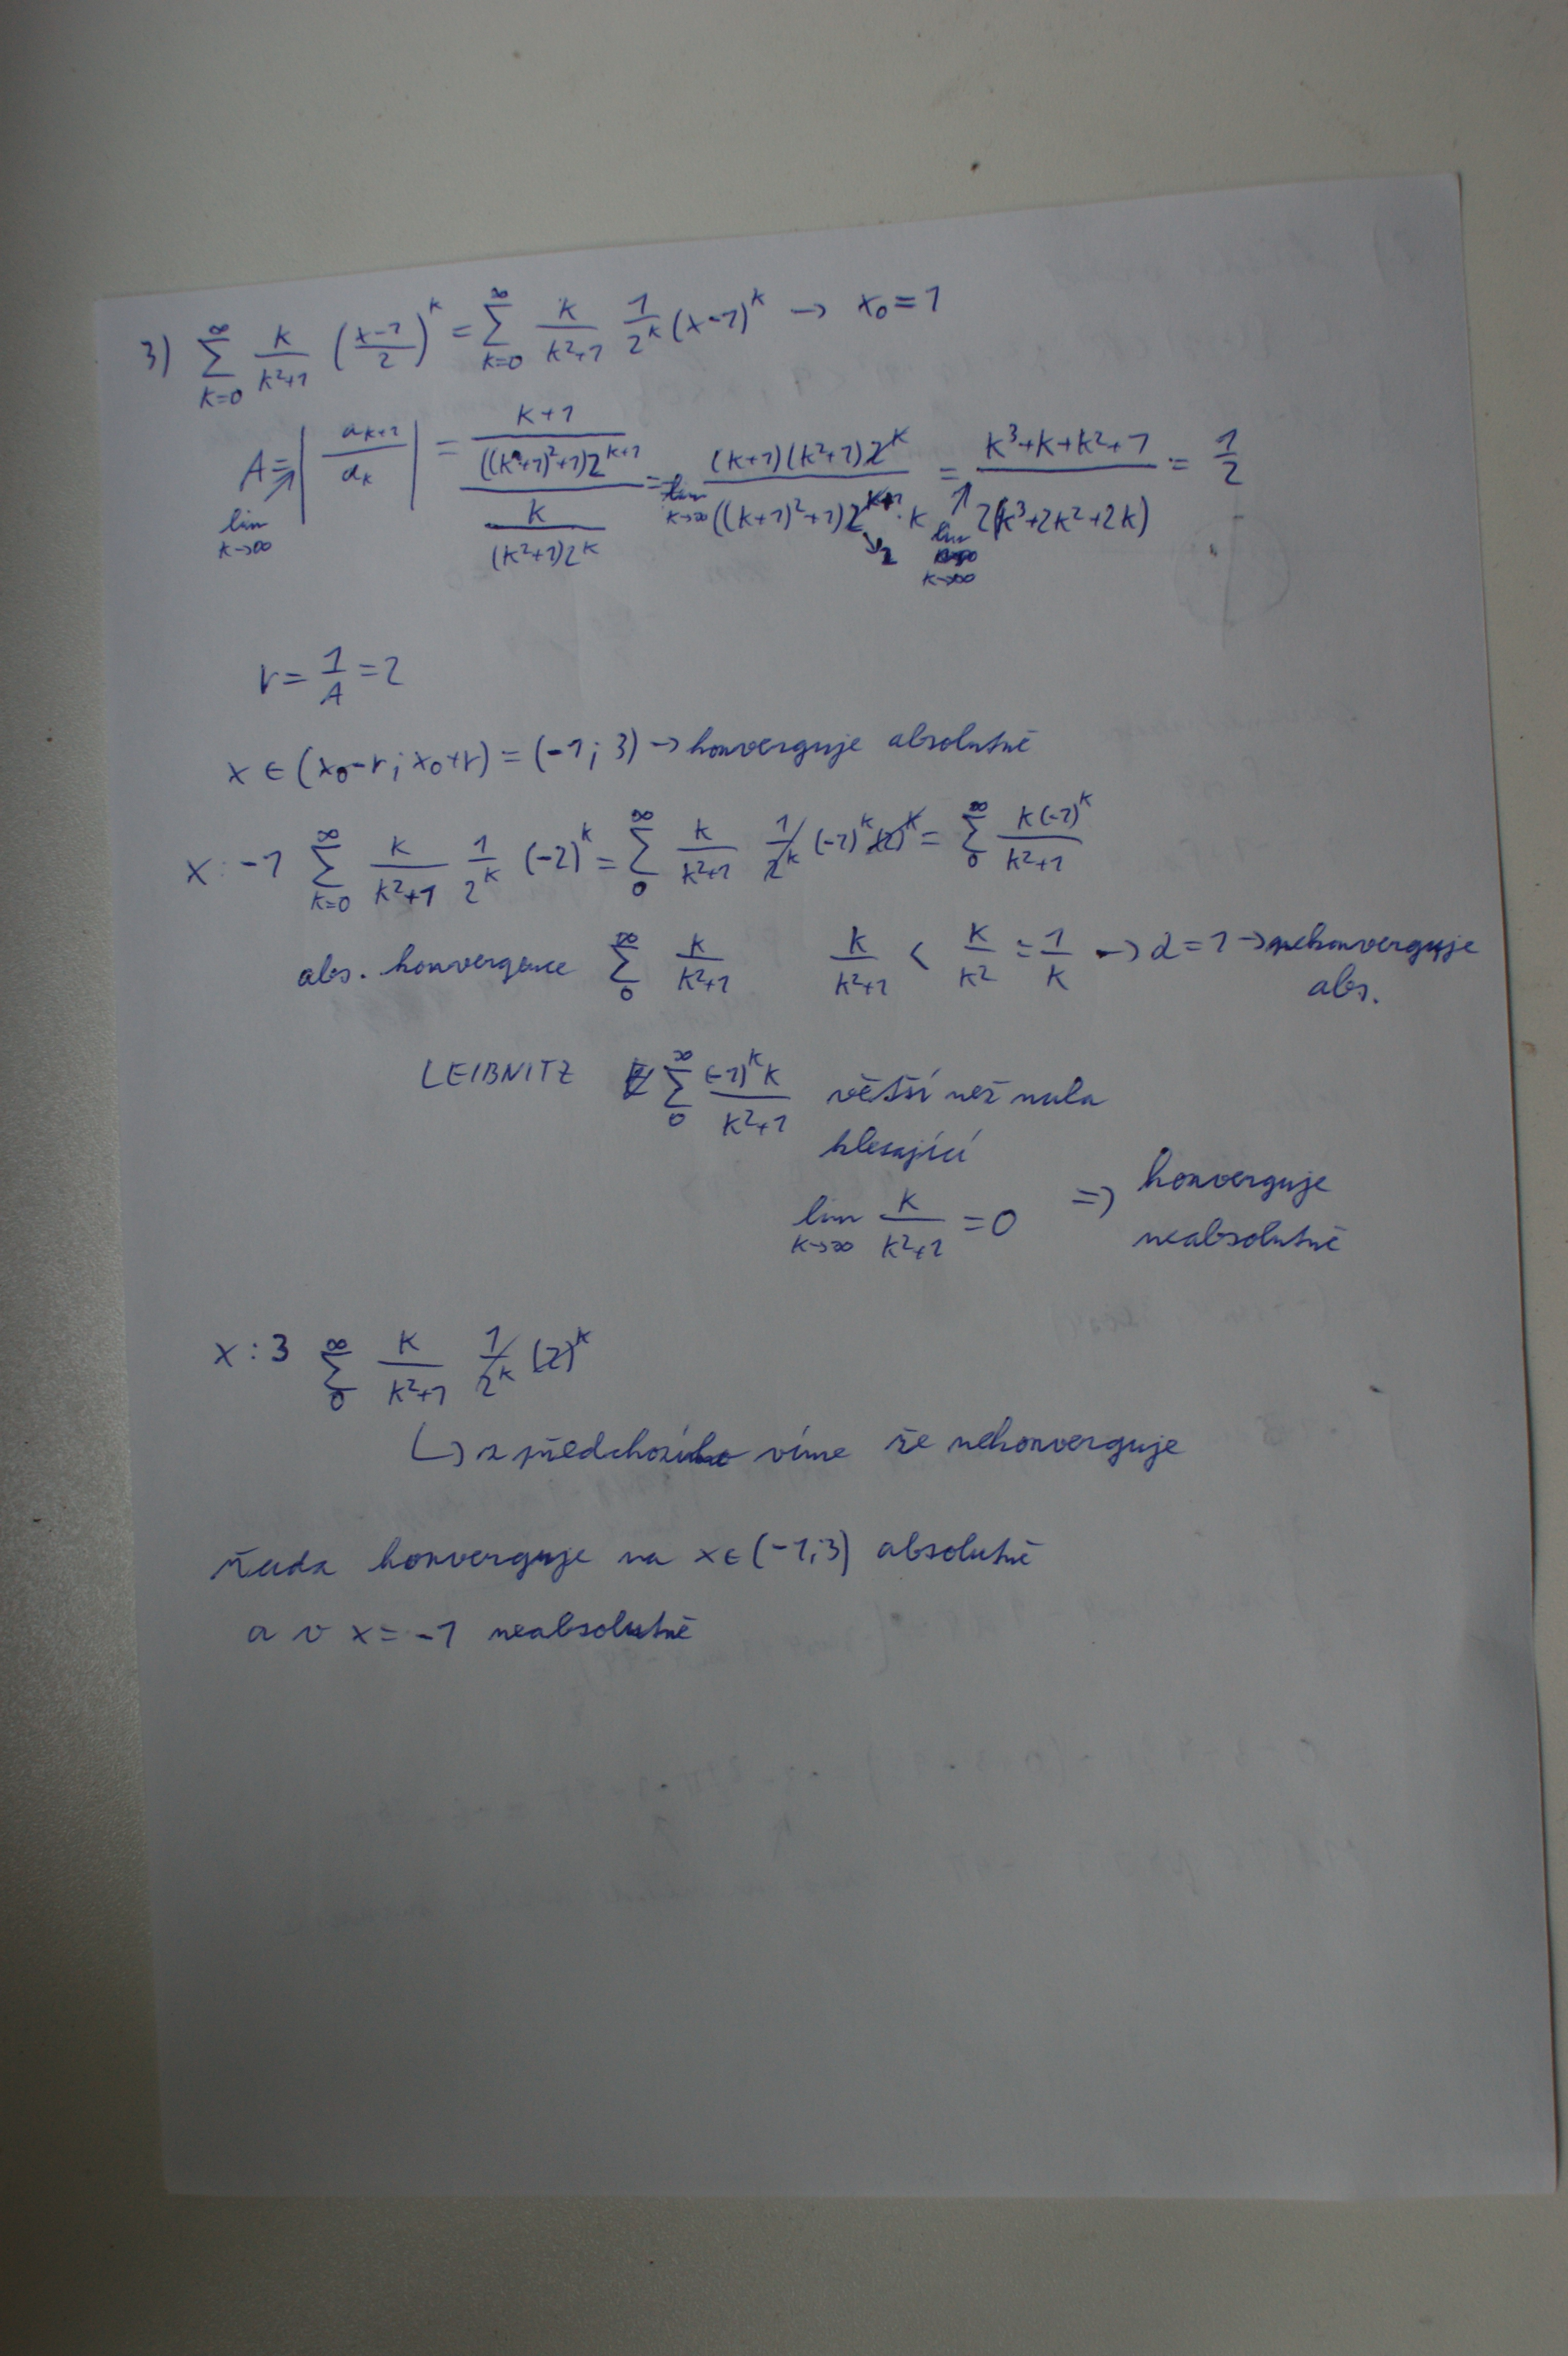 3) ∑_{k=0}^{∞} k/(k²+1) ((x-1)/2)^k = ∑_{k=0}^{∞} k/(k²+1) 1/2^k (x-1)^k → x₀ = 1
A = lim_{k→∞} |a_{k+1}/a_k| = ((k+1)/(((k+1)²+1)2^{k+1}))/(k/((k²+1)2^k)) = lim_{k→∞} ((k+1)(k²+1)2^k)/(((k+1)²+1)2^{k+1}·k) = lim_{k→∞} (k³+k+k²+1)/(2(k³+2k²+2k)) = 1/2
r = 1/A = 2
x ∈ (x₀-r; x₀+r) = (-1; 3) → konverguje absolutně
x: -1 ∑_{k=0}^{∞} k/(k²+1) 1/2^k (-2)^k = ∑_{0}^{∞} k/(k²+1) 1/2^k (-1)^k (2)^k = ∑_{0}^{∞} k(-1)^k/(k²+1)
abs. konvergence ∑_{0}^{∞} k/(k²+1) k/(k²+1) < k/k² = 1/k → α = 1 → nekonverguje
abs.
LEIBNITZ ∑_{0}^{∞} (-1)^k k/(k²+1) větší než nula
klesající
lim_{k→∞} k/(k²+1) = 0 ⇒ konverguje
neabsolutně
x: 3 ∑_{0}^{∞} k/(k²+1) 1/2^k (2)^k
↳ z předchozího víme že nekonverguje
řada konverguje na x∈(-1;3) absolutně
a v x = -1 neabsolutně